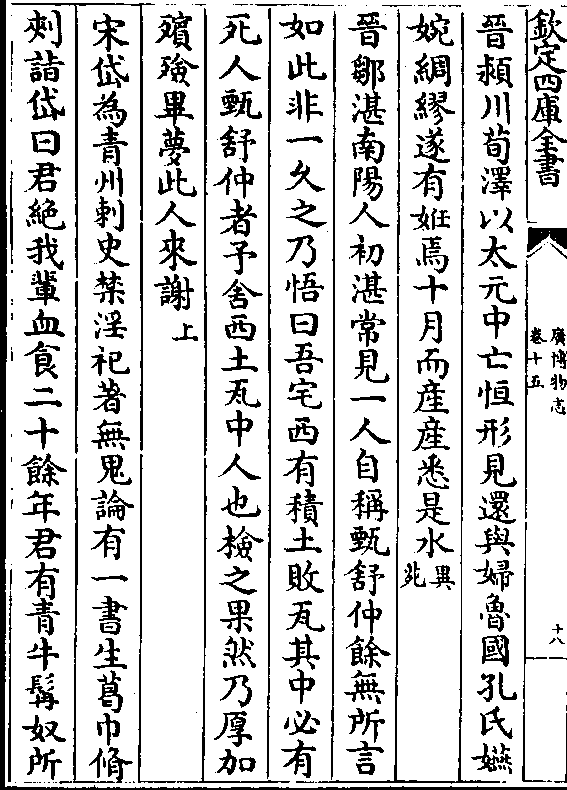 欽定四庫全書
廣博物志
卷十五
十八
晉潁川荀澤以太元中亡恒形見還與婦魯國孔氏嬿
婉綢繆遂有姙焉十月而産産悉是水異苑
晉鄒湛南陽人初湛常見一人自稱甄舒仲餘無所言
如此非一久之乃悟曰吾宅西有積土敗瓦其中必有
死人甄舒仲者予舍西土瓦中人也檢之果然乃厚加
殯殮畢夢此人來謝上
宋岱為青州刺史禁淫祀著無鬼論有一書生葛巾脩
刺詣岱曰君絶我輩血食二十餘年君有青牛髯奴所